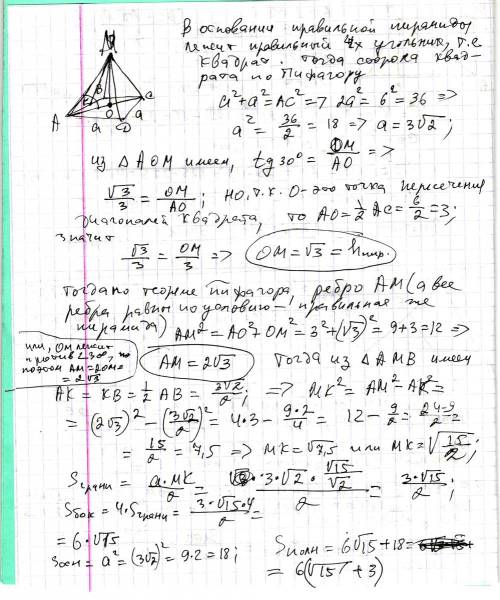 В основании правильной пирамиды
лежит правильный 4х угольник, т.е
квадрат. Тогда сторона квад-
рата по Пифагору
a²+a²=AC²=> 2a²=6²=36 =>
a²=36/2=18=> a=3√2;
M
B
K
O
C
A
a
D
a
из ΔAOM имеем, tg30°=OM/AO =>
√3/3=OM/AO; но, т.к. O-это точка пересечения
диагоналей квадрата, то AO=1/2 AC=6/2=3;
значит
√3/3=OM/3 => OM=√3=hпир.
Тогда по теореме пифагора, ребро AM (а все
ребра равны по условию - правильная же
пирамида) AM²=AO²+OM²=3²+(√3)²=9+3=12 =>
или, OM лежит
против ∠30°, но
поэтом AM=2OM=
=2√3
AM=2√3
Тогда из ΔAMB имеем
AK=KB=1/2 AB=3√2/2; => MK²=AM²-AK²=
=(2√3)²-(3√2/2)²=4·3-9·2/4=12-9/2=24-9/2=
=15/2=7,5 => MK=√7,5 или MK=√15/2;
Sграни=a·MK/2=3·√2·√15/√2/2=3·√15/2;
Sбок=4·Sграни=3·√15·4/2=
=6·√15
Sосн=a²=(3√2)²=9·2=18;
Sполн=6√15+18=
=6(√15+3)